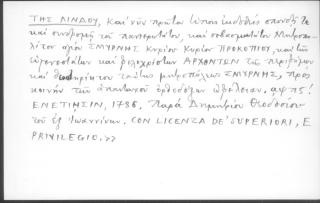 ΤΗΣ ΛΙΝΔΟΥ, καὶ νῦν πρῶτον τύποις ἐκδοθεὶς σπουδῇ τε
καὶ συνδρομῇ τοῦ πανιερωτάτου, καὶ σεβασμιωτάτου Μητροπο-
λίτου ἁγίου ΣΜΥΡΝΗΣ Κυρίου Κυρίου ΠΡΟΚΟΠΙΟΥ, καὶ τῶν
εὐγενεστάτων καὶ φιλοχρίστων ΑΡΧΟΝΤΩΝ τῆς περιφήμου
καὶ ταύτης μητροπόλεως ΣΜΥΡΝΗΣ, πρὸς
κοινὴν τῶν ἁπανταχοῦ ὀρθοδόξων ὠφέλειαν,
ΕΝΕΤΙΗΣΙΝ, 1786, Παρὰ Δημητρίου Θεοδοσίου
τοῦ ἐξ Ἰωαννίνων. CON LICENZA DE' SUPERIORI, E
PRIVILEGIO.>>